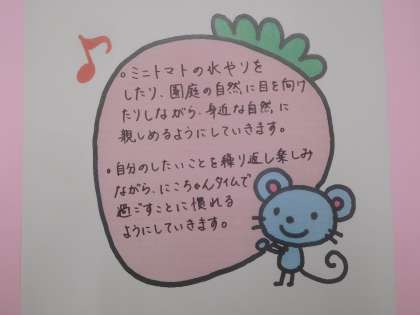 。ミニトマトの水やりを
したり、園庭の自然に目を向け
たりしながら、身近な自然に
親しめるようにしていきます。
。自分のしたいことを繰り返し楽しみ
ながら、にこちゃんタイムで
過ごすことに慣れる
ようにしていきます。